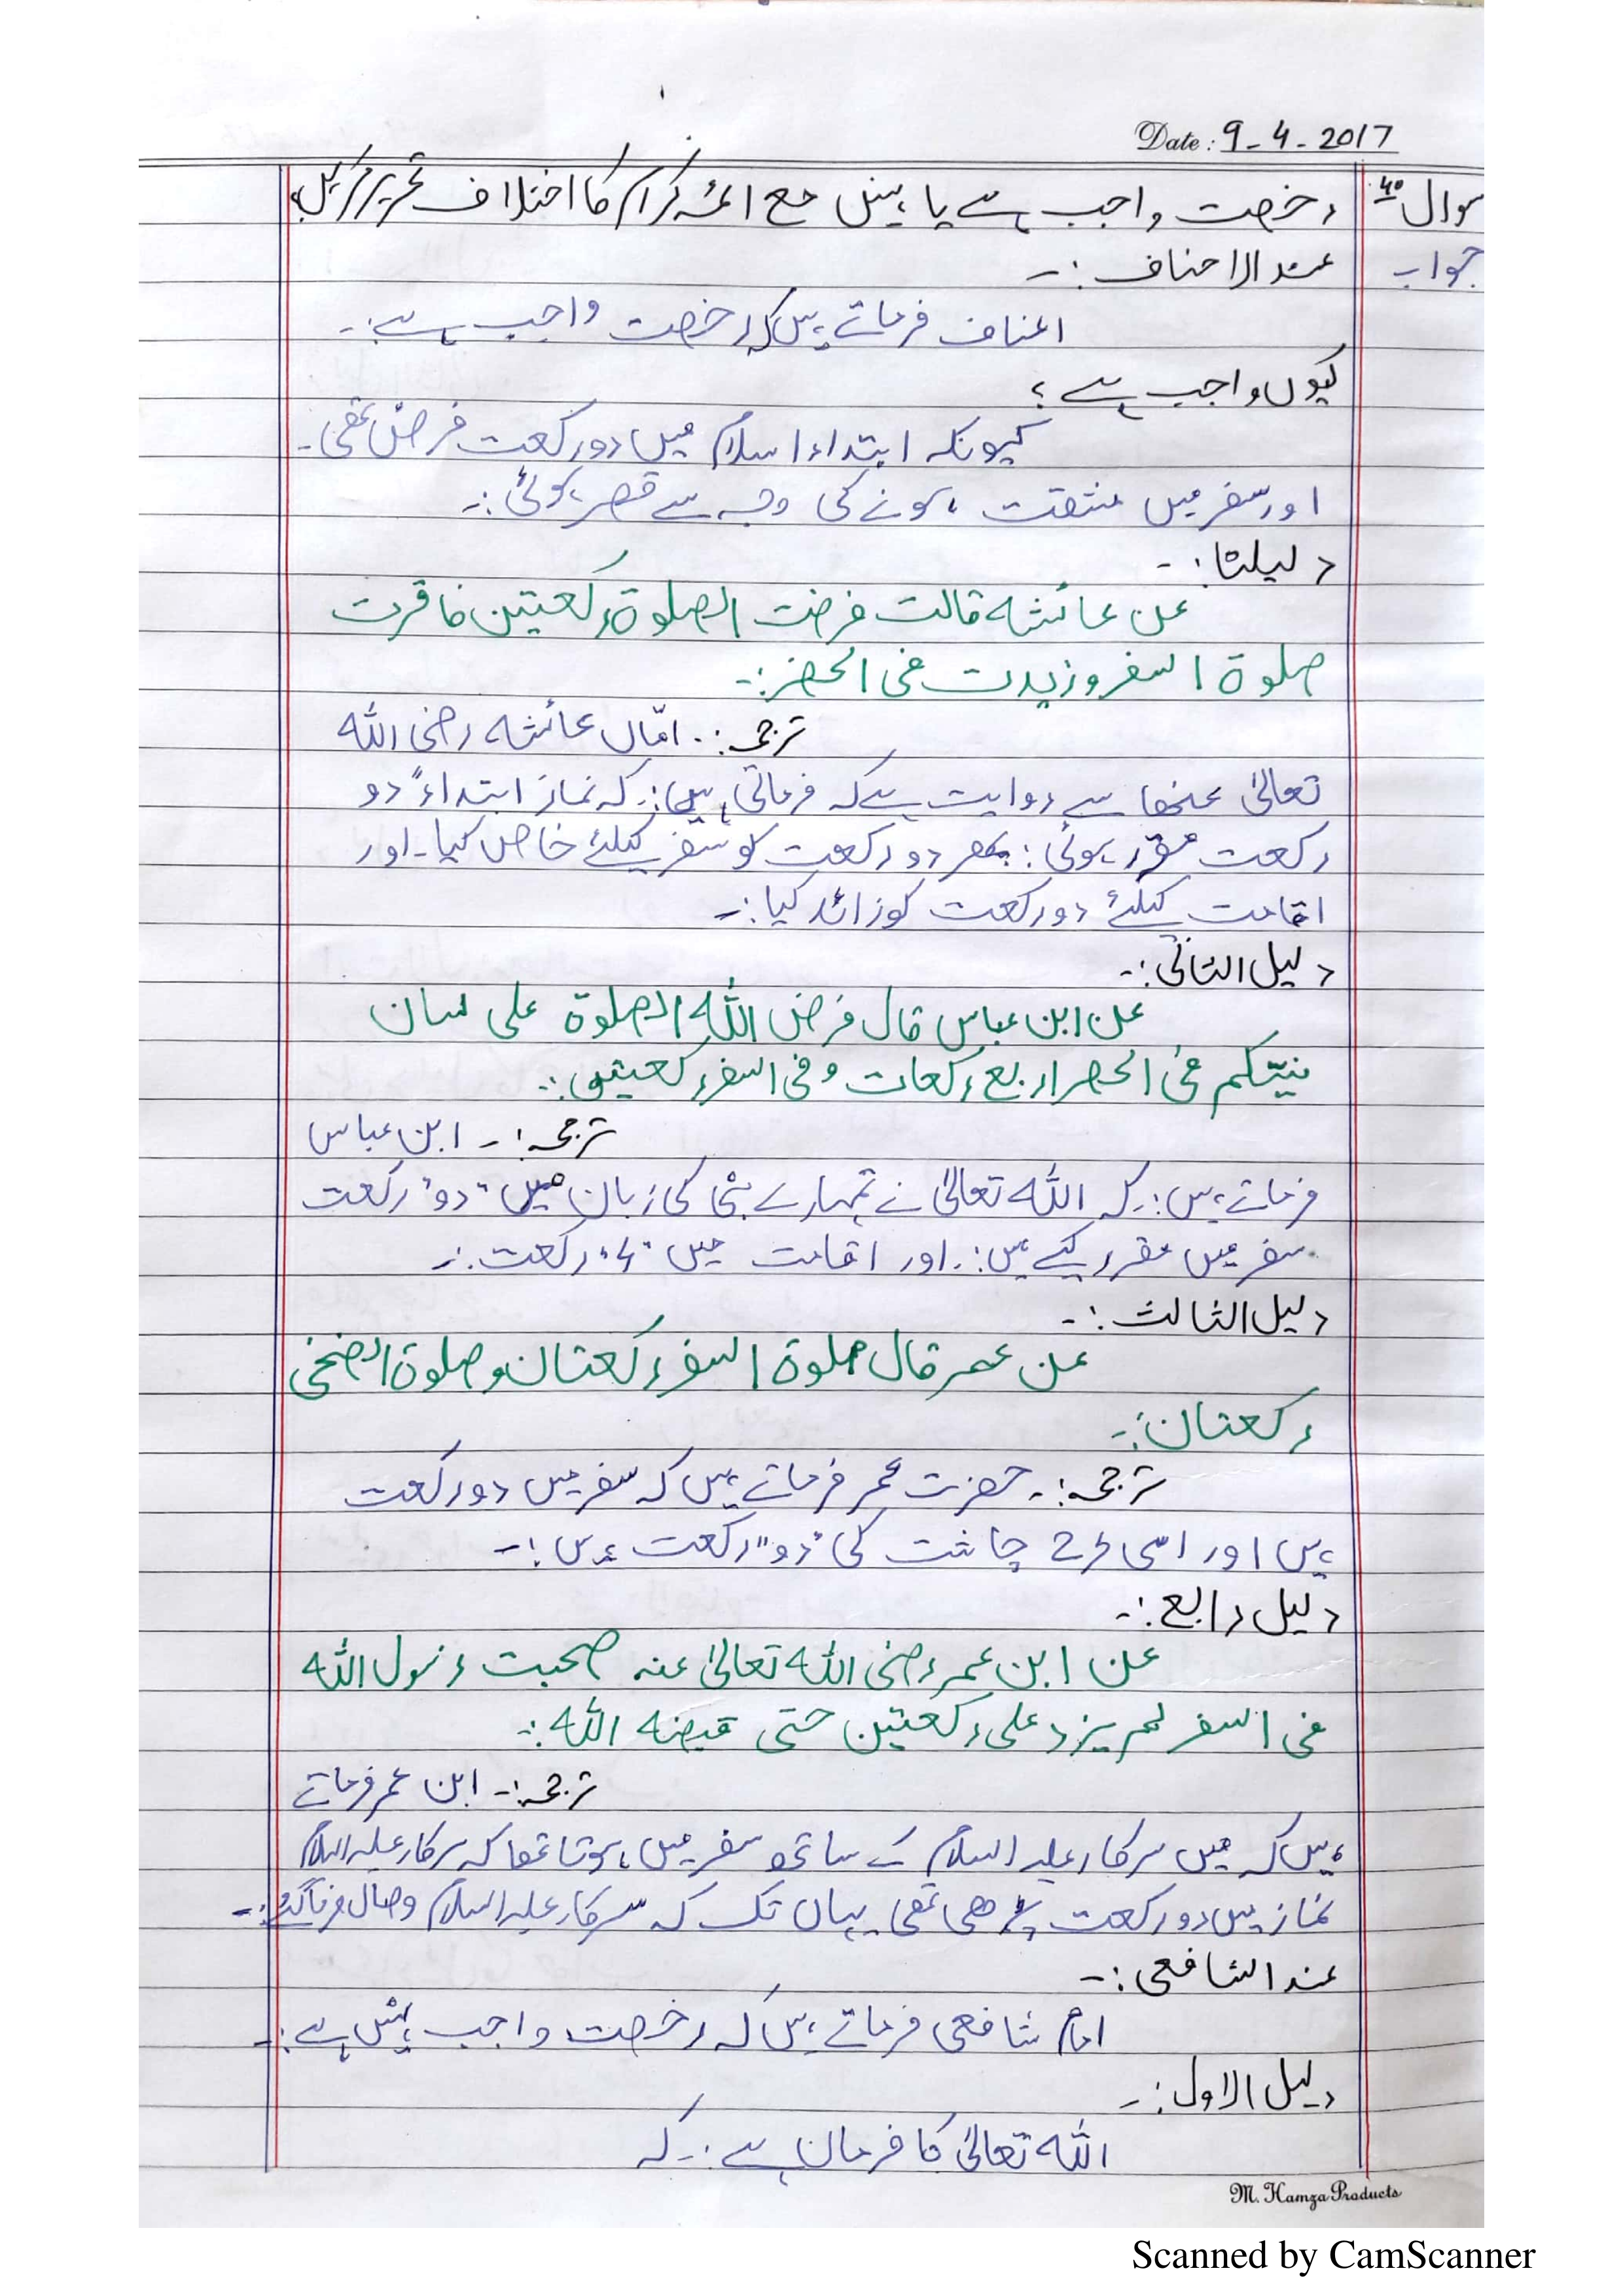 Date: 9-4-2017
سوال رخصت واجب ہے یا نہیں مع ائمہ کرام کا اختلاف تحریر کریں
جواب عندالاحناف :-
احناف فرماتے ہیں کہ رخصت واجب ہے :-
کیوں واجب ہے ؟
کیونکہ ابتداء اسلام میں دو رکعت فرض تھی -
اور سفر میں مشقت ہونے کی وجہ سے قصر ہوئی :-
دلیلنا :-
عن عائشہ قالت فرضت الصلوة رکعتین فاقرت
صلوة السفر وزیدت فی الحضر :-
ترجمہ :- امّاں عائشہ رضی اللہ
تعالیٰ عنھا سے روایت ہے کہ فرماتی ہیں :- کہ نماز ابتداءً دو
رکعت مقرر ہوئی : پھر دو رکعت کو سفر کیلئے خاص کیا - اور
اقامت کیلئے دو رکعت کو زائد کیا :-
دلیل الثانی :-
عن ابن عباس قال فرض اللہ الصلوة علی لسان
نبیکم فی الحضر اربع رکعات و فی السفر رکعتین :-
ترجمہ :- ابن عباس
فرماتے ہیں :- کہ اللہ تعالیٰ نے تمہارے نبی کی زبان میں "دو" رکعت
سفر میں مقرر کیے ہیں :- اور اقامت میں "4" رکعت :-
دلیل الثالث :-
عن عمر قال صلوة السفر رکعتان و صلوة الضحی
رکعتان :-
ترجمہ :- حضرت عمر فرماتے ہیں کہ سفر میں دو رکعت
ہیں اور اسی طرح چاشت کی "دو" رکعت ہیں :-
دلیل رابع :-
عن ابن عمر رضی اللہ تعالیٰ عنہ صحبت رسول اللہ
فی السفر لم یزد علی رکعتین حتی قبضہ اللہ :-
ترجمہ :- ابن عمر فرماتے
ہیں کہ میں سرکار علیہ السلام کے ساتھ سفر میں ہوتا تھا کہ سرکار علیہ السلام
نماز میں دو رکعت پڑھی تھی یہاں تک کہ سرکار علیہ السلام وصال فرما گئے :-
عند الشافعی :-
امام شافعی فرماتے ہیں کہ رخصت واجب نہیں ہے :-
دلیل الاول :-
اللہ تعالیٰ کا فرمان ہے :- کہ
M. Hamza Products
Scanned by CamScanner